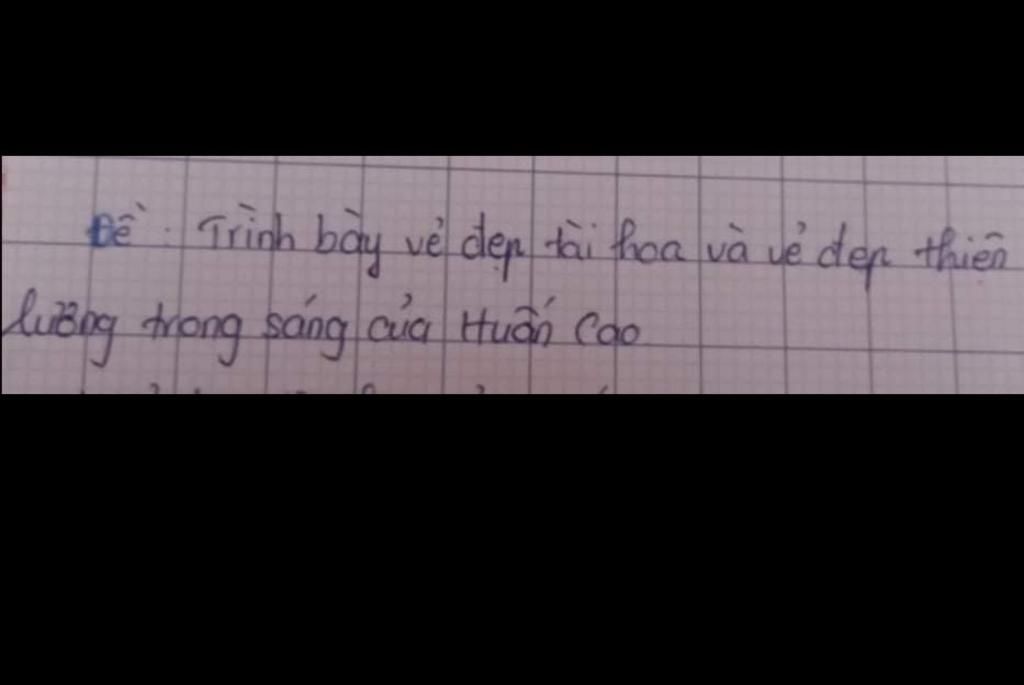 Đề: Trình bày vẻ đẹp tài hoa và vẻ đẹp thiên
lương trong sáng của Huấn Cao